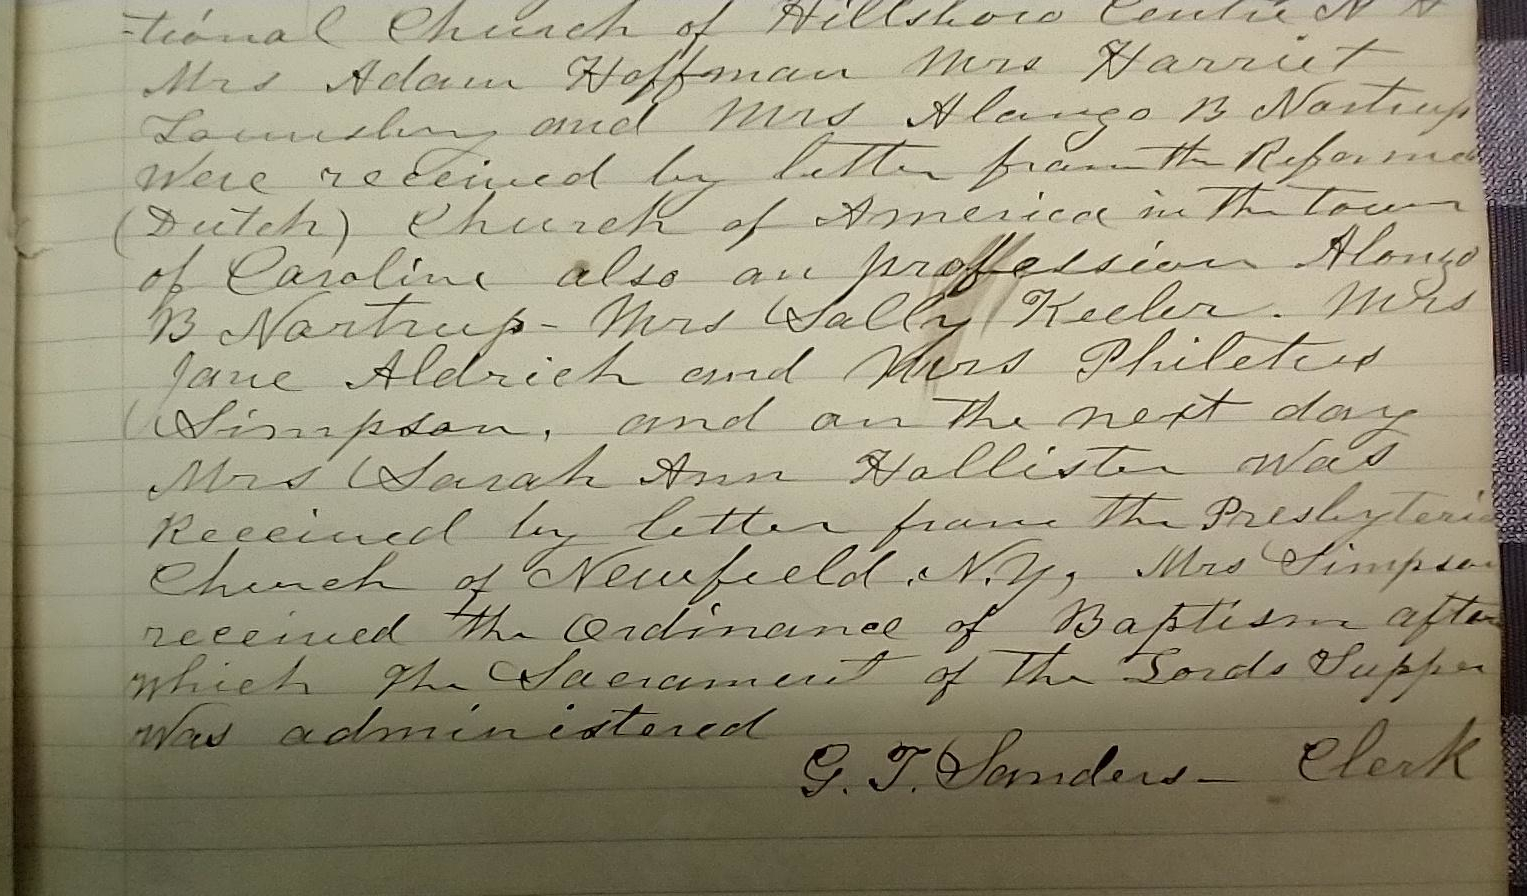 -tional Church of Hillsboro Centre N H
Mrs Adam Hoffman Mrs Harriet
Lounsbury and Mrs Alonzo B Nortrup
were received by letter from the Reformed
(Dutch) Church of America in the town
of Caroline also on profession Alonzo
B Nortrup - Mrs Sally Keeler. Mrs
Jane Aldrich and Mrs Philetus
Simpson, and on the next day
Mrs Sarah Ann Hollister was
Received by letter from the Presbyteria
Church of Newfield, N.Y, Mrs Simpson
received the Ordinance of Baptism after
which the Sacrament of the Lords Supper
was administered
G. T. Sanders - Clerk